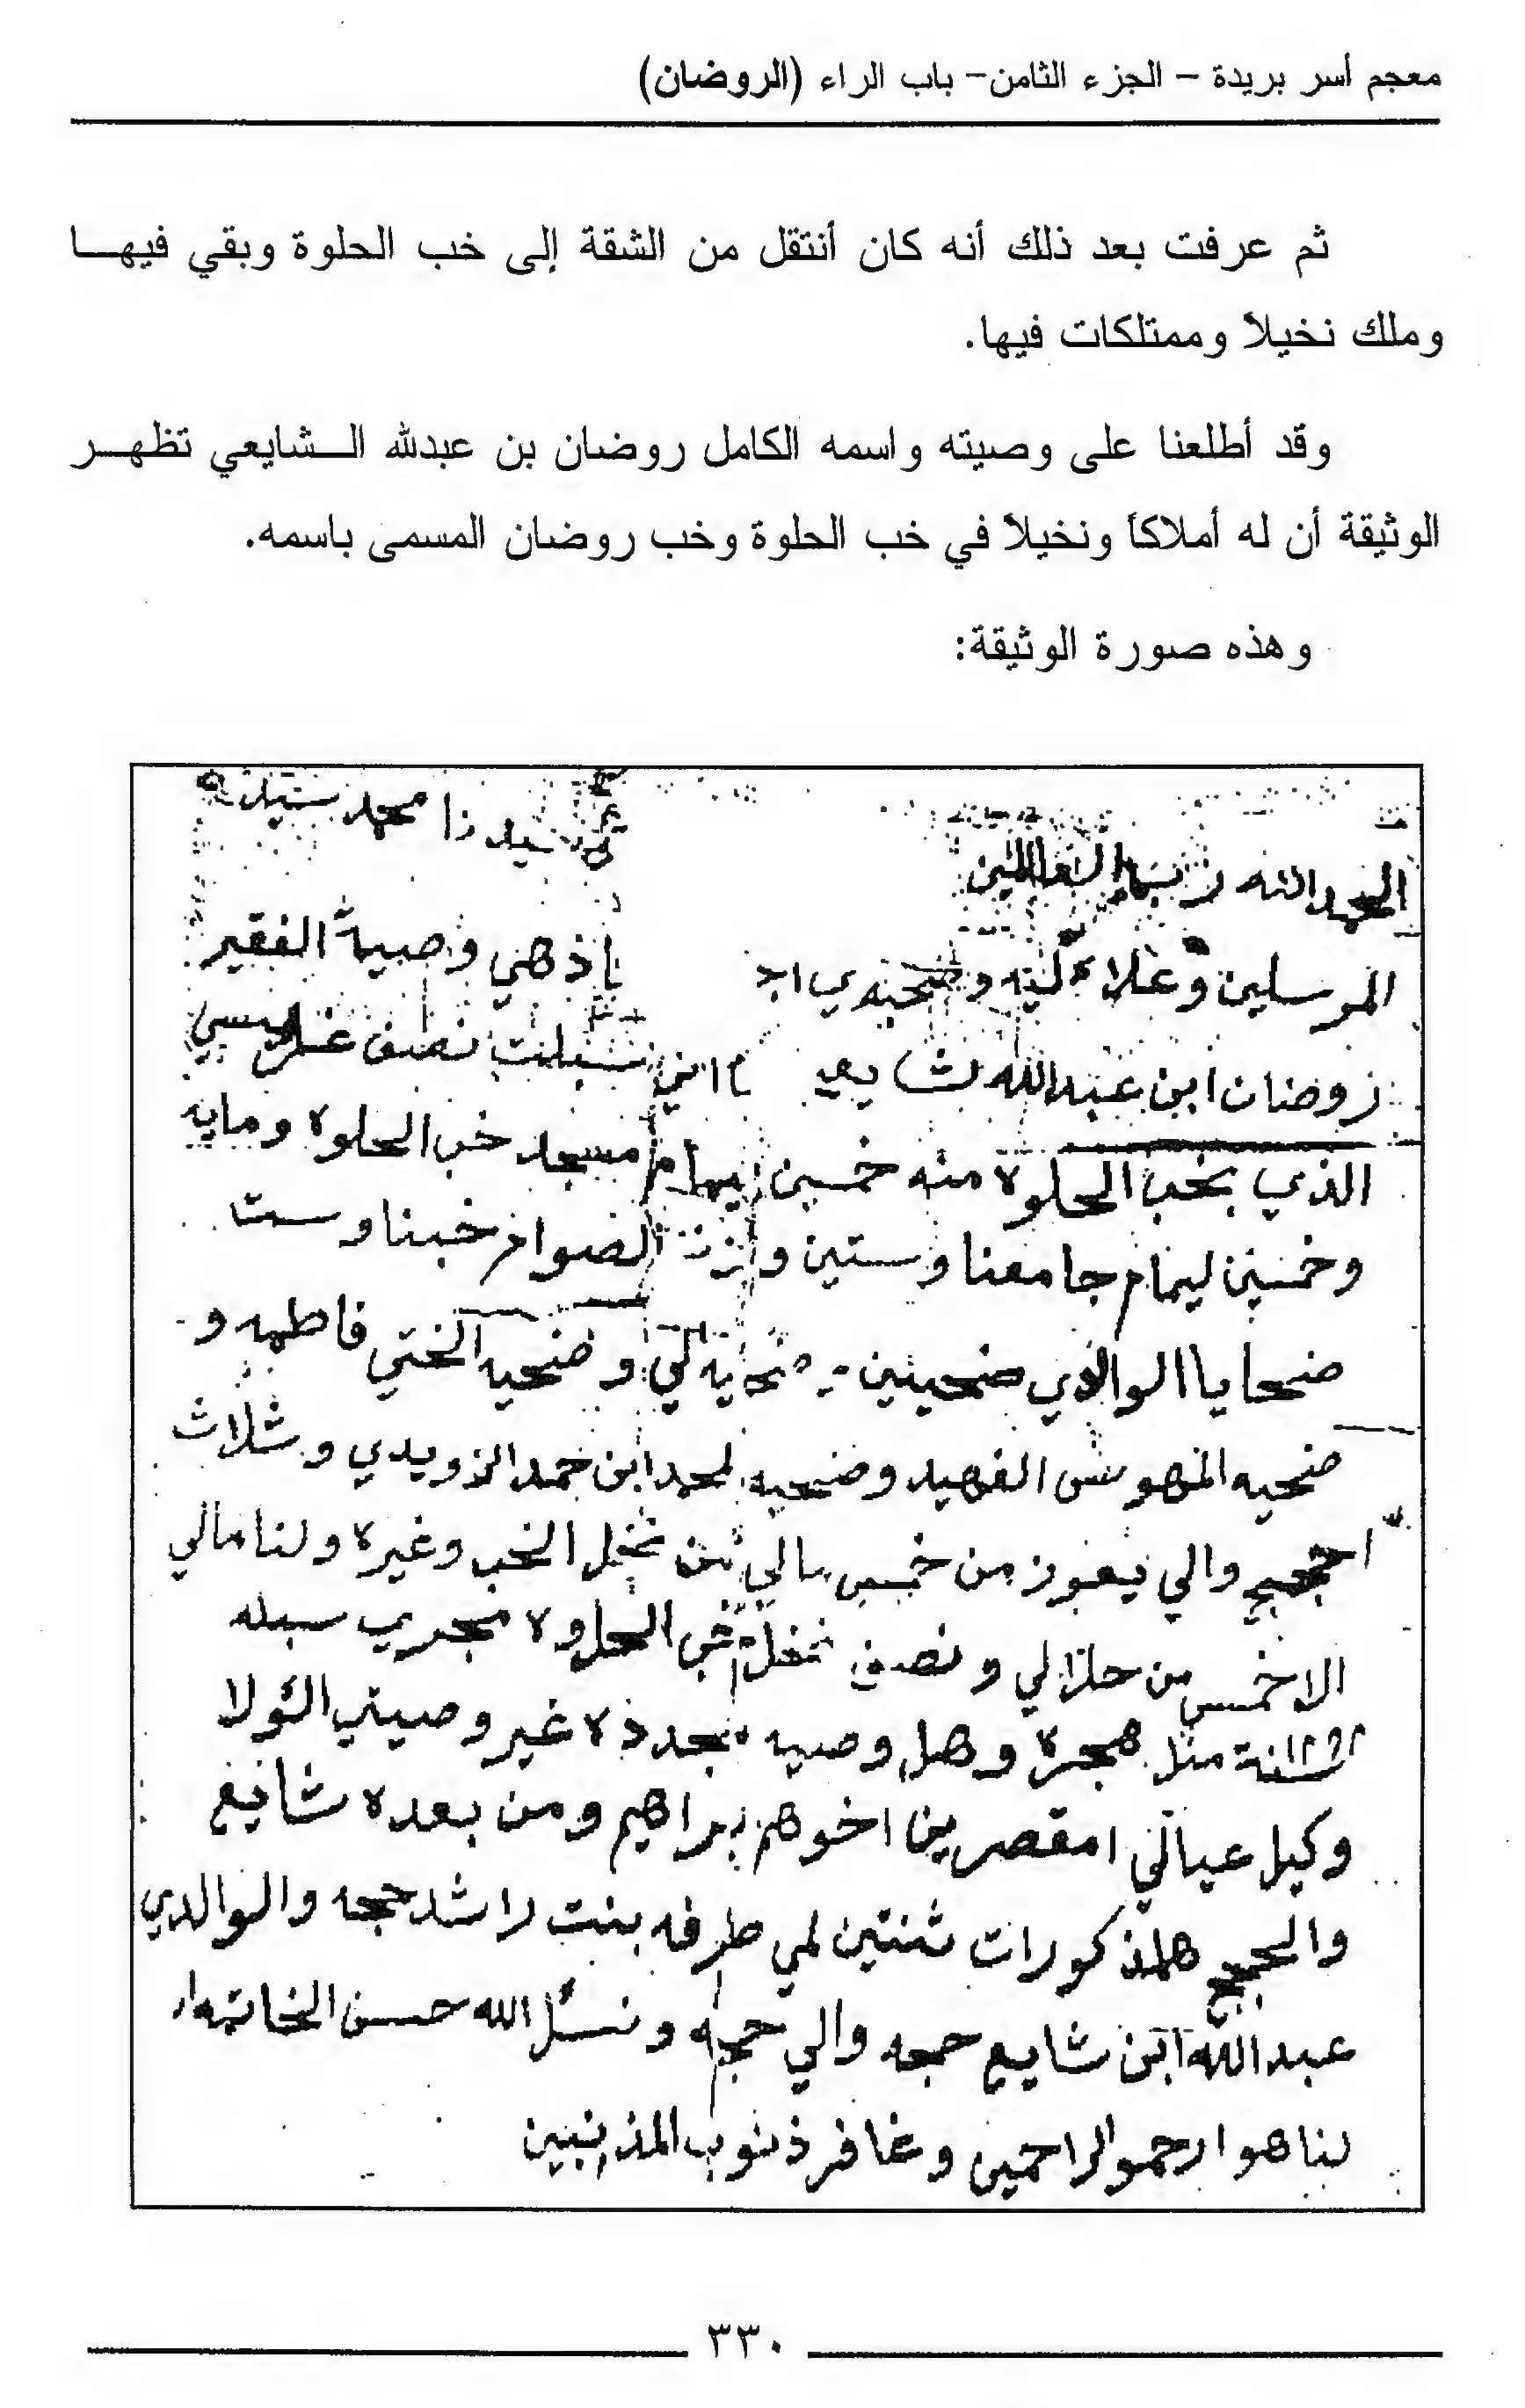 معجم أسر بريدة – الجزء الثامن– باب الراء (الروضان)
ثم عرفت بعد ذلك أنه كان أنتقل من الشقة إلى خب الحلوة وبقي فيها
وملك نخيلاً وممتلكات فيها.
وقد أطلعنا على وصيته واسمه الكامل روضان بن عبدلله الشايعي تظهر
الوثيقة أن له أملاكاً ونخيلاً في خب الحلوة وخب روضان المسمى باسمه.
وهذه صورة الوثيقة:
الحمد الله محمد سيد
المرسلين وعلا وصحبه هي وصية الفقير
روضان ابن عبدالله لشايعي سبلت نصف
الذي بخب الحلوه منه خمسين مسجد خب الحلوه ومايه
وخمسين ليمام جامعنا وستين الصوام خبنا وست
ضحايا الوالدي ضحيتين لي وضحيه الختي فاطمه و
ضحيه الفهيد وضحيه لمحمد ابن حمد الرويدي وثلاث
والي من خمس مالي من نخل الخب وغيره ولنا مالي
الاخمس من حلالي ونصف خب الحلوه مجري سبله
مثل هجره وهل وصيه مجدده غير وصيتي الئولا
وكيل عيالي امقصرين اخوهم براهيم ومن بعده شايع
والحجج هلمذكورات ثنتين لمي طرفه بنت راشد حجه والوالدي
عبدالله ابن شايع حجه والي حجه ونسئل الله حسن الخاتمه
لنا هوا ارحموالراحمين وغافر ذنوب المذنبين
٣٣٠